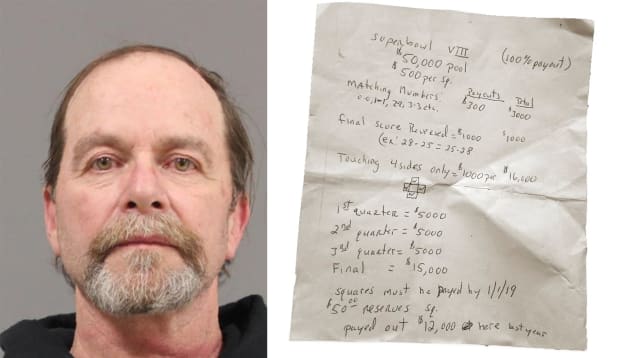 superbowl VIII
(100% payout)
$50,000 pool
$500 per sq.
Matching Numbers Payouts Total
0-0, 1-1, 2-2, 3-3 etc. $300 $3000
final score Reversed = $1000 $1000
(ex: 28-25 = 25-28
Touching 4 sides only = $1000 per $16,000
1st quarter = $5000
2nd quarter = $5000
3rd quarter = $5000
Final = $15,000
squares must be payed by 1/1/19
$50.00 reserves sq.
payed out $12,000 here last year